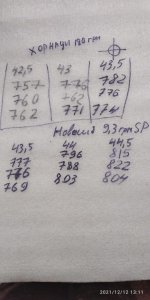 хорнади 170 грн
42,5 43 43,5
757 776 782
760 762 776
762 771 774
Новый 9,3 грм SP
43,5 44 44,5
777 796 815
776 788 822
769 803 804
2021/12/12 13:11